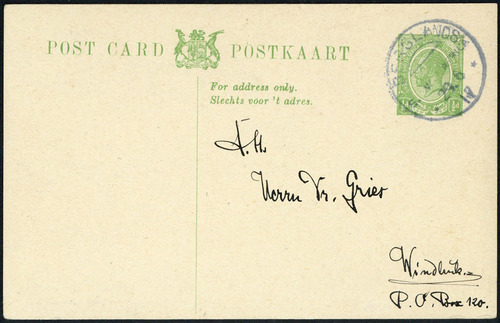 POST CARD POSTKAART
For address only.
Slechts voor 't adres.
Herrn Dr. Gries
Windhuk.
P. O. Box 120.